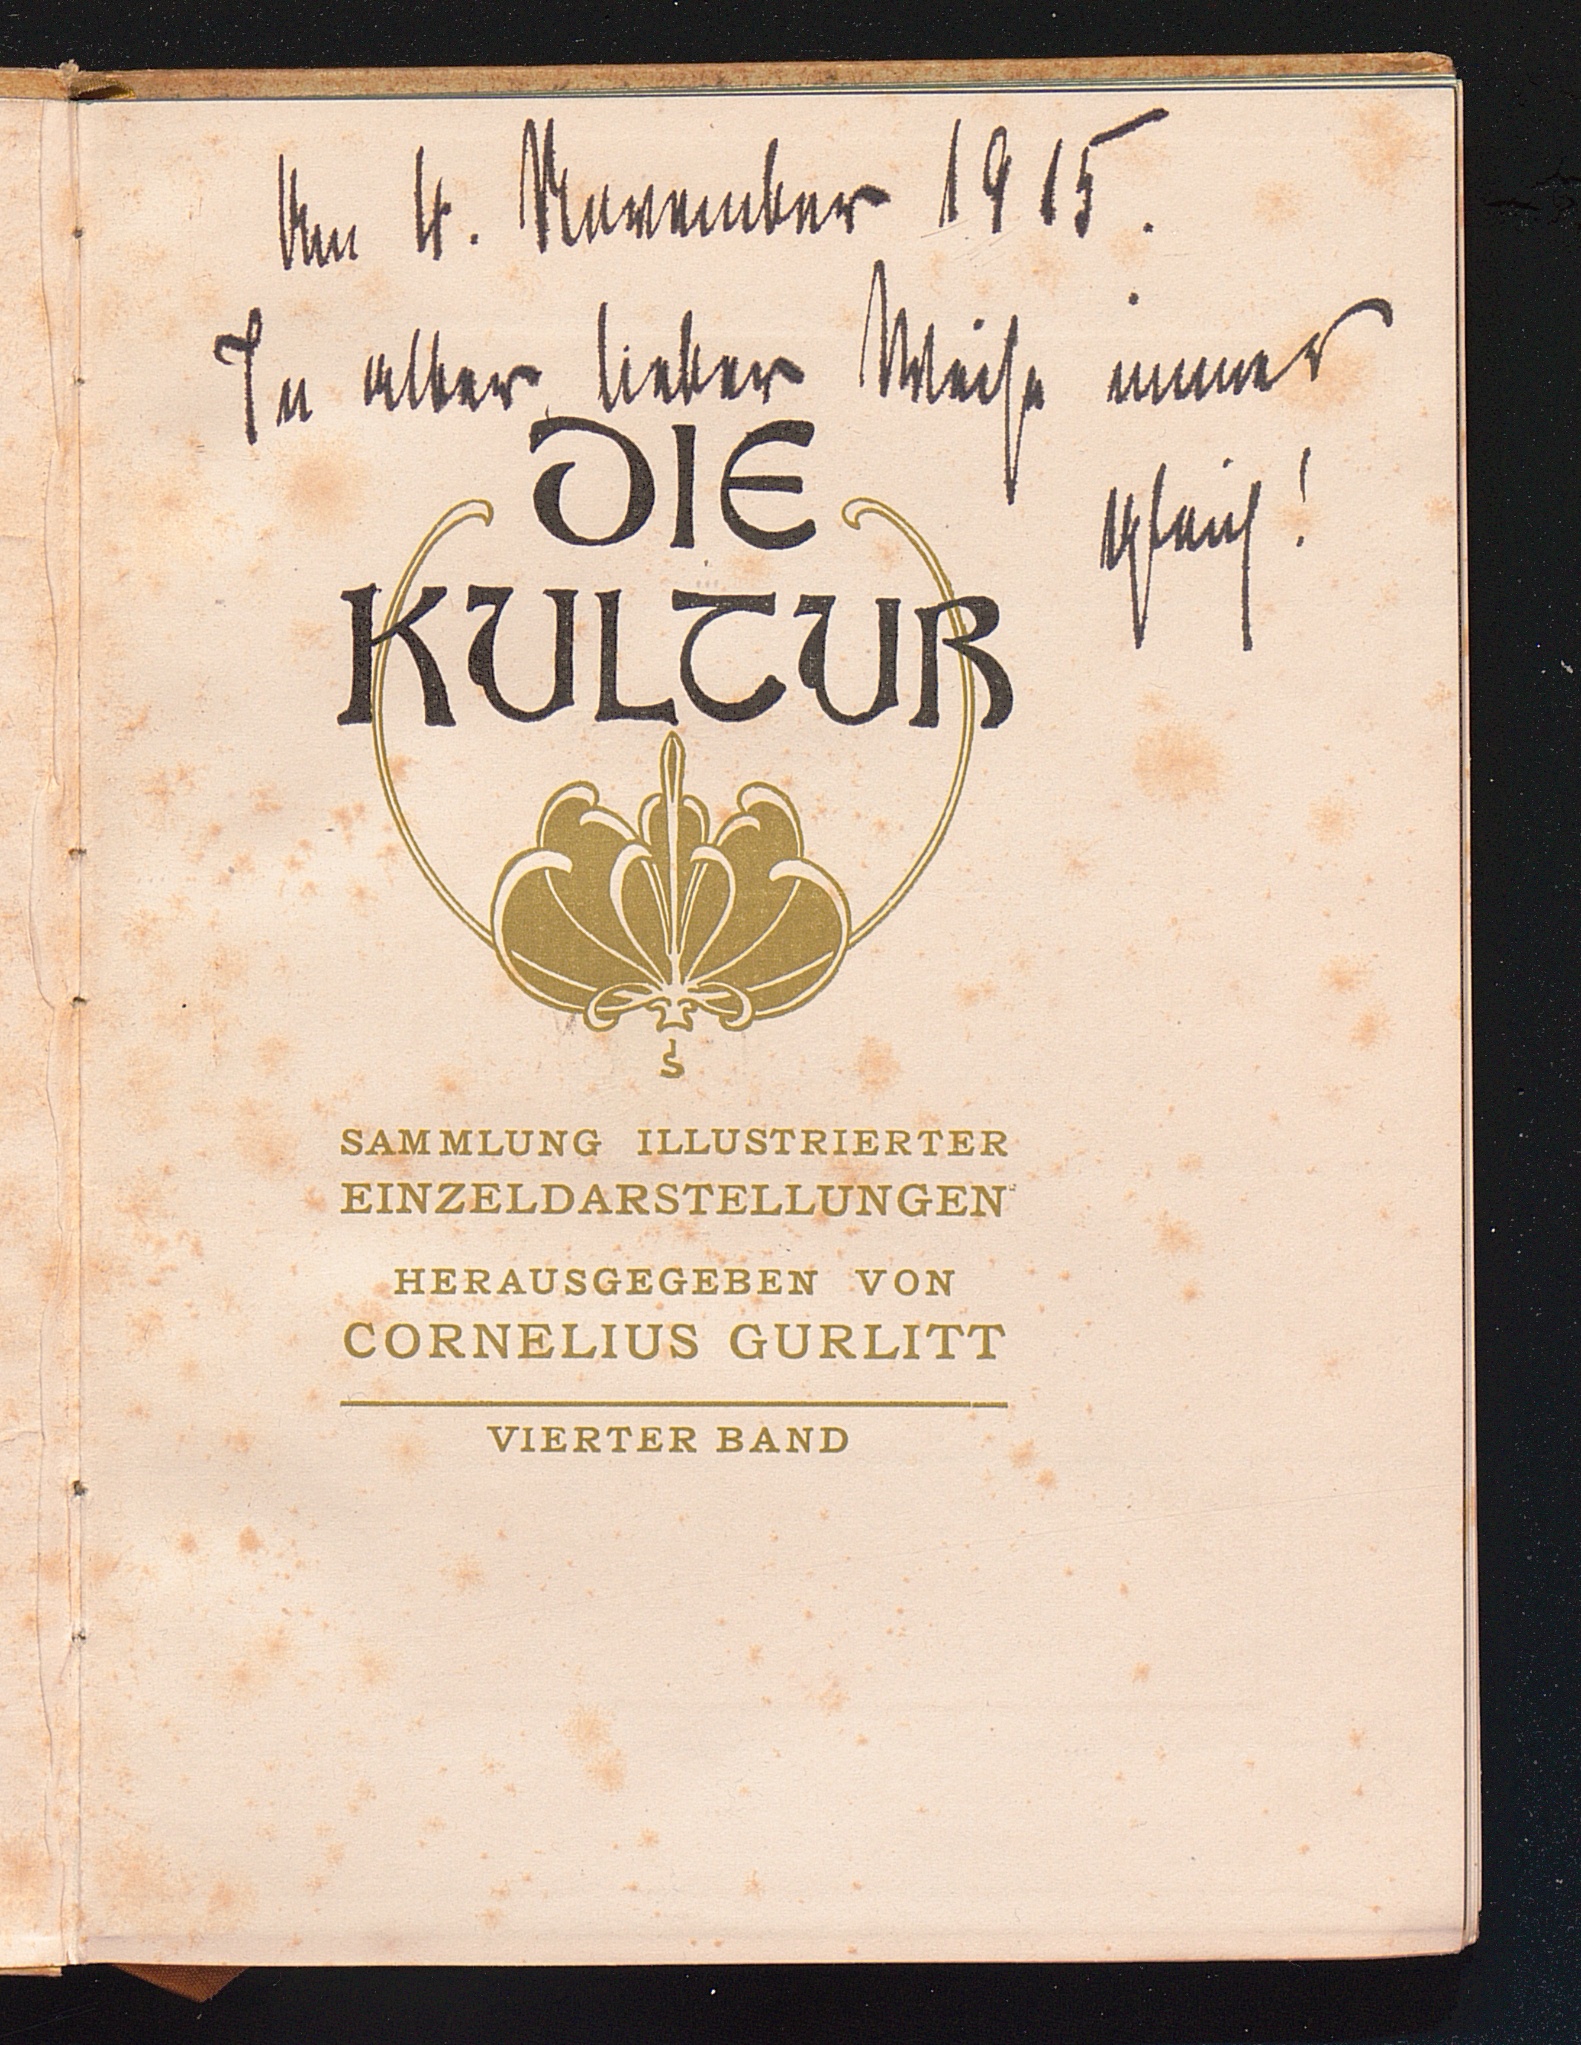 Am 4. November 1915.
In alter lieber Weise immer
gleich!
DIE
KULTUR
S
SAMMLUNG ILLUSTRIERTER
EINZELDARSTELLUNGEN
HERAUSGEGEBEN VON
CORNELIUS GURLITT
VIERTER BAND